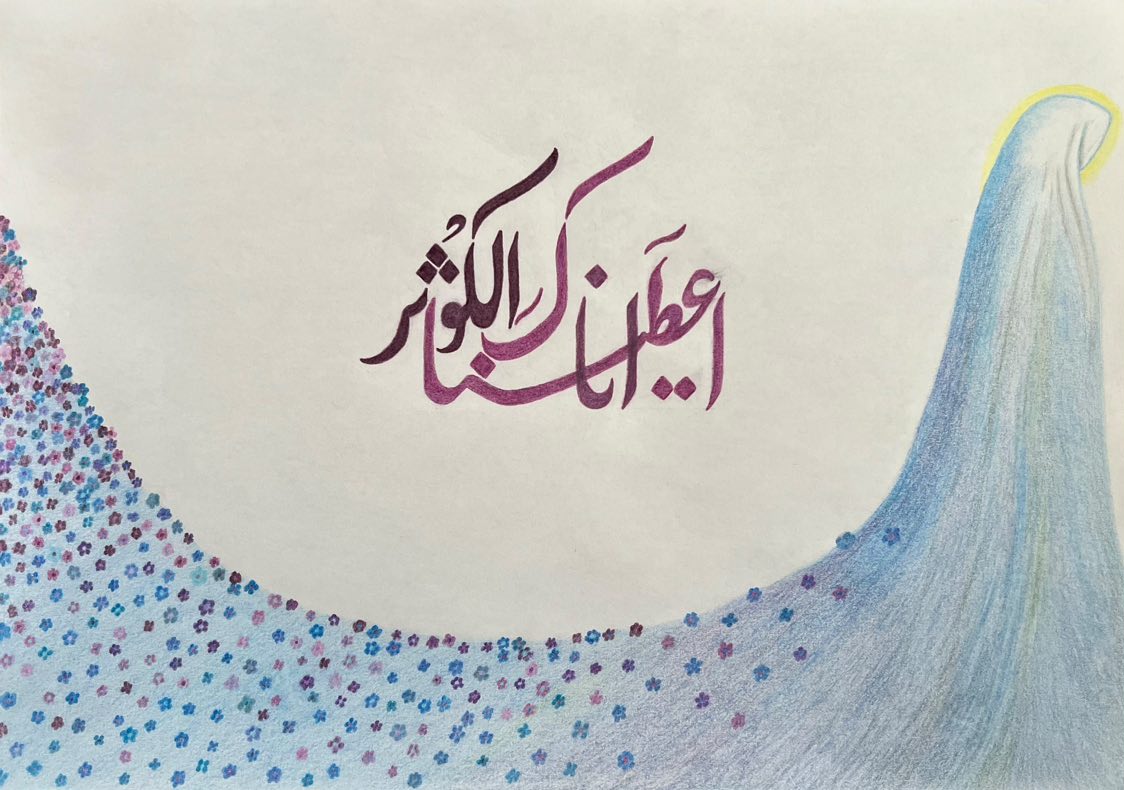 انا اعطيناك الكوثر